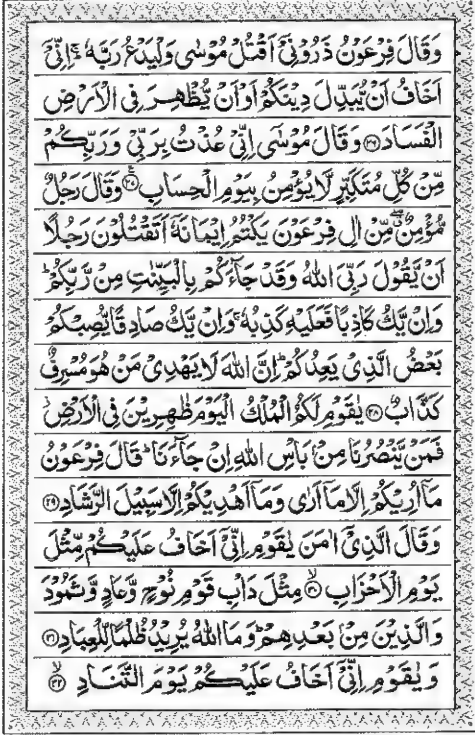 وَقَالَ فِرْعَوْنُ ذَرُوْنِیْۤ اَقْتُلْ مُوْسٰی وَلْیَدْعُ رَبَّهٗ ۚ اِنِّیْۤ
اَخَافُ اَنْ یُّبَدِّلَ دِیْنَكُمْ اَوْ اَنْ یُّظْهِرَ فِی الْاَرْضِ
الْفَسَادَ ﴿۲۶﴾ وَقَالَ مُوْسٰۤی اِنِّیْ عُذْتُ بِرَبِّیْ وَرَبِّكُمْ
مِّنْ كُلِّ مُتَكَبِّرٍ لَّا یُؤْمِنُ بِیَوْمِ الْحِسَابِ ﴿۲۷﴾ وَقَالَ رَجُلٌ
مُّؤْمِنٌ ۖ مِّنْ اٰلِ فِرْعَوْنَ یَكْتُمُ اِیْمَانَهٗۤ اَتَقْتُلُوْنَ رَجُلًا
اَنْ یَّقُوْلَ رَبِّیَ اللّٰهُ وَقَدْ جَآءَكُمْ بِالْبَیِّنٰتِ مِنْ رَّبِّكُمْ ؕ
وَاِنْ یَّكُ كَاذِبًا فَعَلَیْهِ كَذِبُهٗ ۚ وَاِنْ یَّكُ صَادِقًا یُّصِبْكُمْ
بَعْضُ الَّذِیْ یَعِدُكُمْ ؕ اِنَّ اللّٰهَ لَا یَهْدِیْ مَنْ هُوَ مُسْرِفٌ
كَذَّابٌ ﴿۲۸﴾ یٰقَوْمِ لَكُمُ الْمُلْكُ الْیَوْمَ ظٰهِرِیْنَ فِی الْاَرْضِ ؗ
فَمَنْ یَّنْصُرُنَا مِنْۢ بَاْسِ اللّٰهِ اِنْ جَآءَنَا ؕ قَالَ فِرْعَوْنُ
مَاۤ اُرِیْكُمْ اِلَّا مَاۤ اَرٰی وَمَاۤ اَهْدِیْكُمْ اِلَّا سَبِیْلَ الرَّشَادِ ﴿۲۹﴾
وَقَالَ الَّذِیْۤ اٰمَنَ یٰقَوْمِ اِنِّیْۤ اَخَافُ عَلَیْكُمْ مِّثْلَ
یَوْمِ الْاَحْزَابِ ﴿۳۰﴾ۙ مِثْلَ دَاْبِ قَوْمِ نُوْحٍ وَّعَادٍ وَّثَمُوْدَ
وَالَّذِیْنَ مِنْۢ بَعْدِهِمْ ؕ وَمَا اللّٰهُ یُرِیْدُ ظُلْمًا لِّلْعِبَادِ ﴿۳۱﴾
وَیٰقَوْمِ اِنِّیْۤ اَخَافُ عَلَیْكُمْ یَوْمَ التَّنَادِ ﴿۳۲﴾ۙ